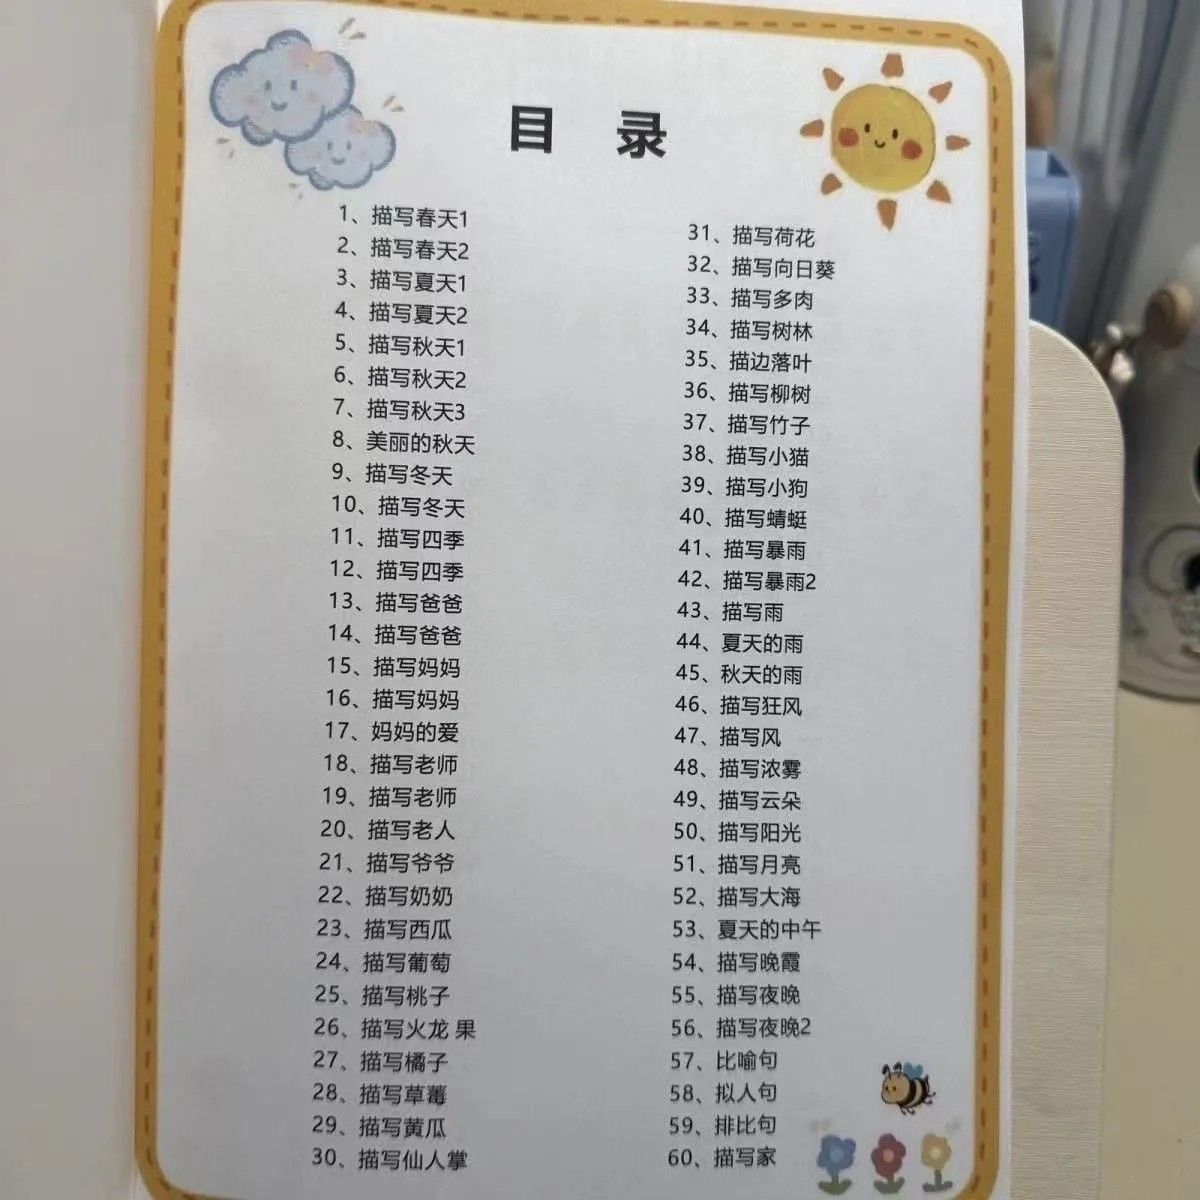 目 录
1、描写春天1
2、描写春天2
3、描写夏天1
4、描写夏天2
5、描写秋天1
6、描写秋天2
7、描写秋天3
8、美丽的秋天
9、描写冬天
10、描写冬天
11、描写四季
12、描写四季
13、描写爸爸
14、描写爸爸
15、描写妈妈
16、描写妈妈
17、妈妈的爱
18、描写老师
19、描写老师
20、描写老人
21、描写爷爷
22、描写奶奶
23、描写西瓜
24、描写葡萄
25、描写桃子
26、描写火龙 果
27、描写橘子
28、描写草莓
29、描写黄瓜
30、描写仙人掌
31、描写荷花
32、描写向日葵
33、描写多肉
34、描写树林
35、描边落叶
36、描写柳树
37、描写竹子
38、描写小猫
39、描写小狗
40、描写蜻蜓
41、描写暴雨
42、描写暴雨2
43、描写雨
44、夏天的雨
45、秋天的雨
46、描写狂风
47、描写风
48、描写浓雾
49、描写云朵
50、描写阳光
51、描写月亮
52、描写大海
53、夏天的中午
54、描写晚霞
55、描写夜晚
56、描写夜晚2
57、比喻句
58、拟人句
59、排比句
60、描写家